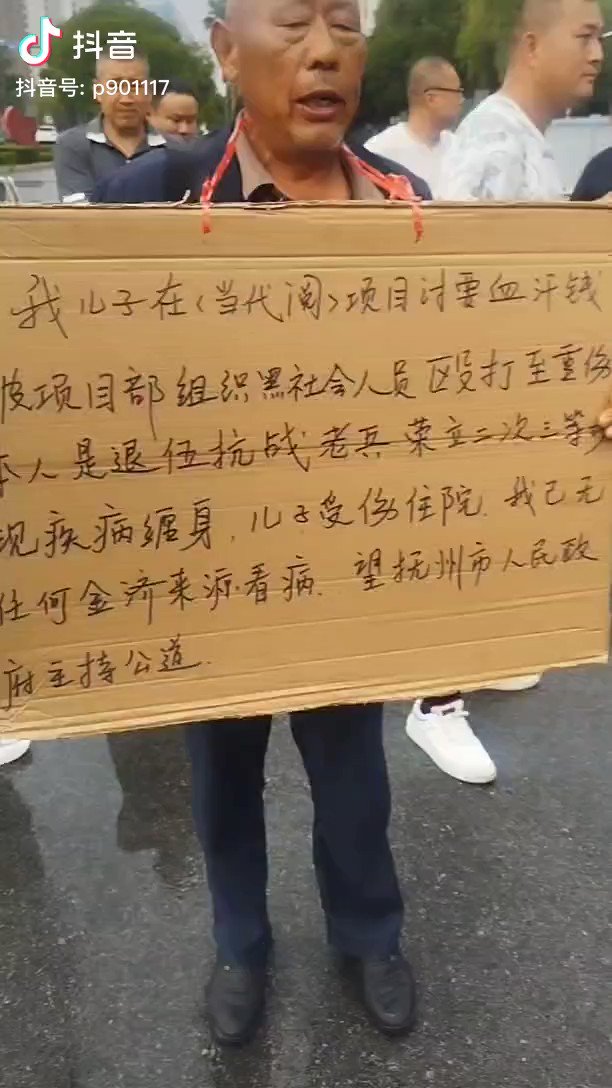 抖音
抖音号: p901117
我儿子在〈当代阅〉项目讨要血汗钱
被项目部组织黑社会人员殴打至重伤
本人是退伍抗战老兵 荣立二次三等功
现疾病缠身,儿子受伤住院.我已无
任何金济来源看病.望抚州市人民政
府主持公道.